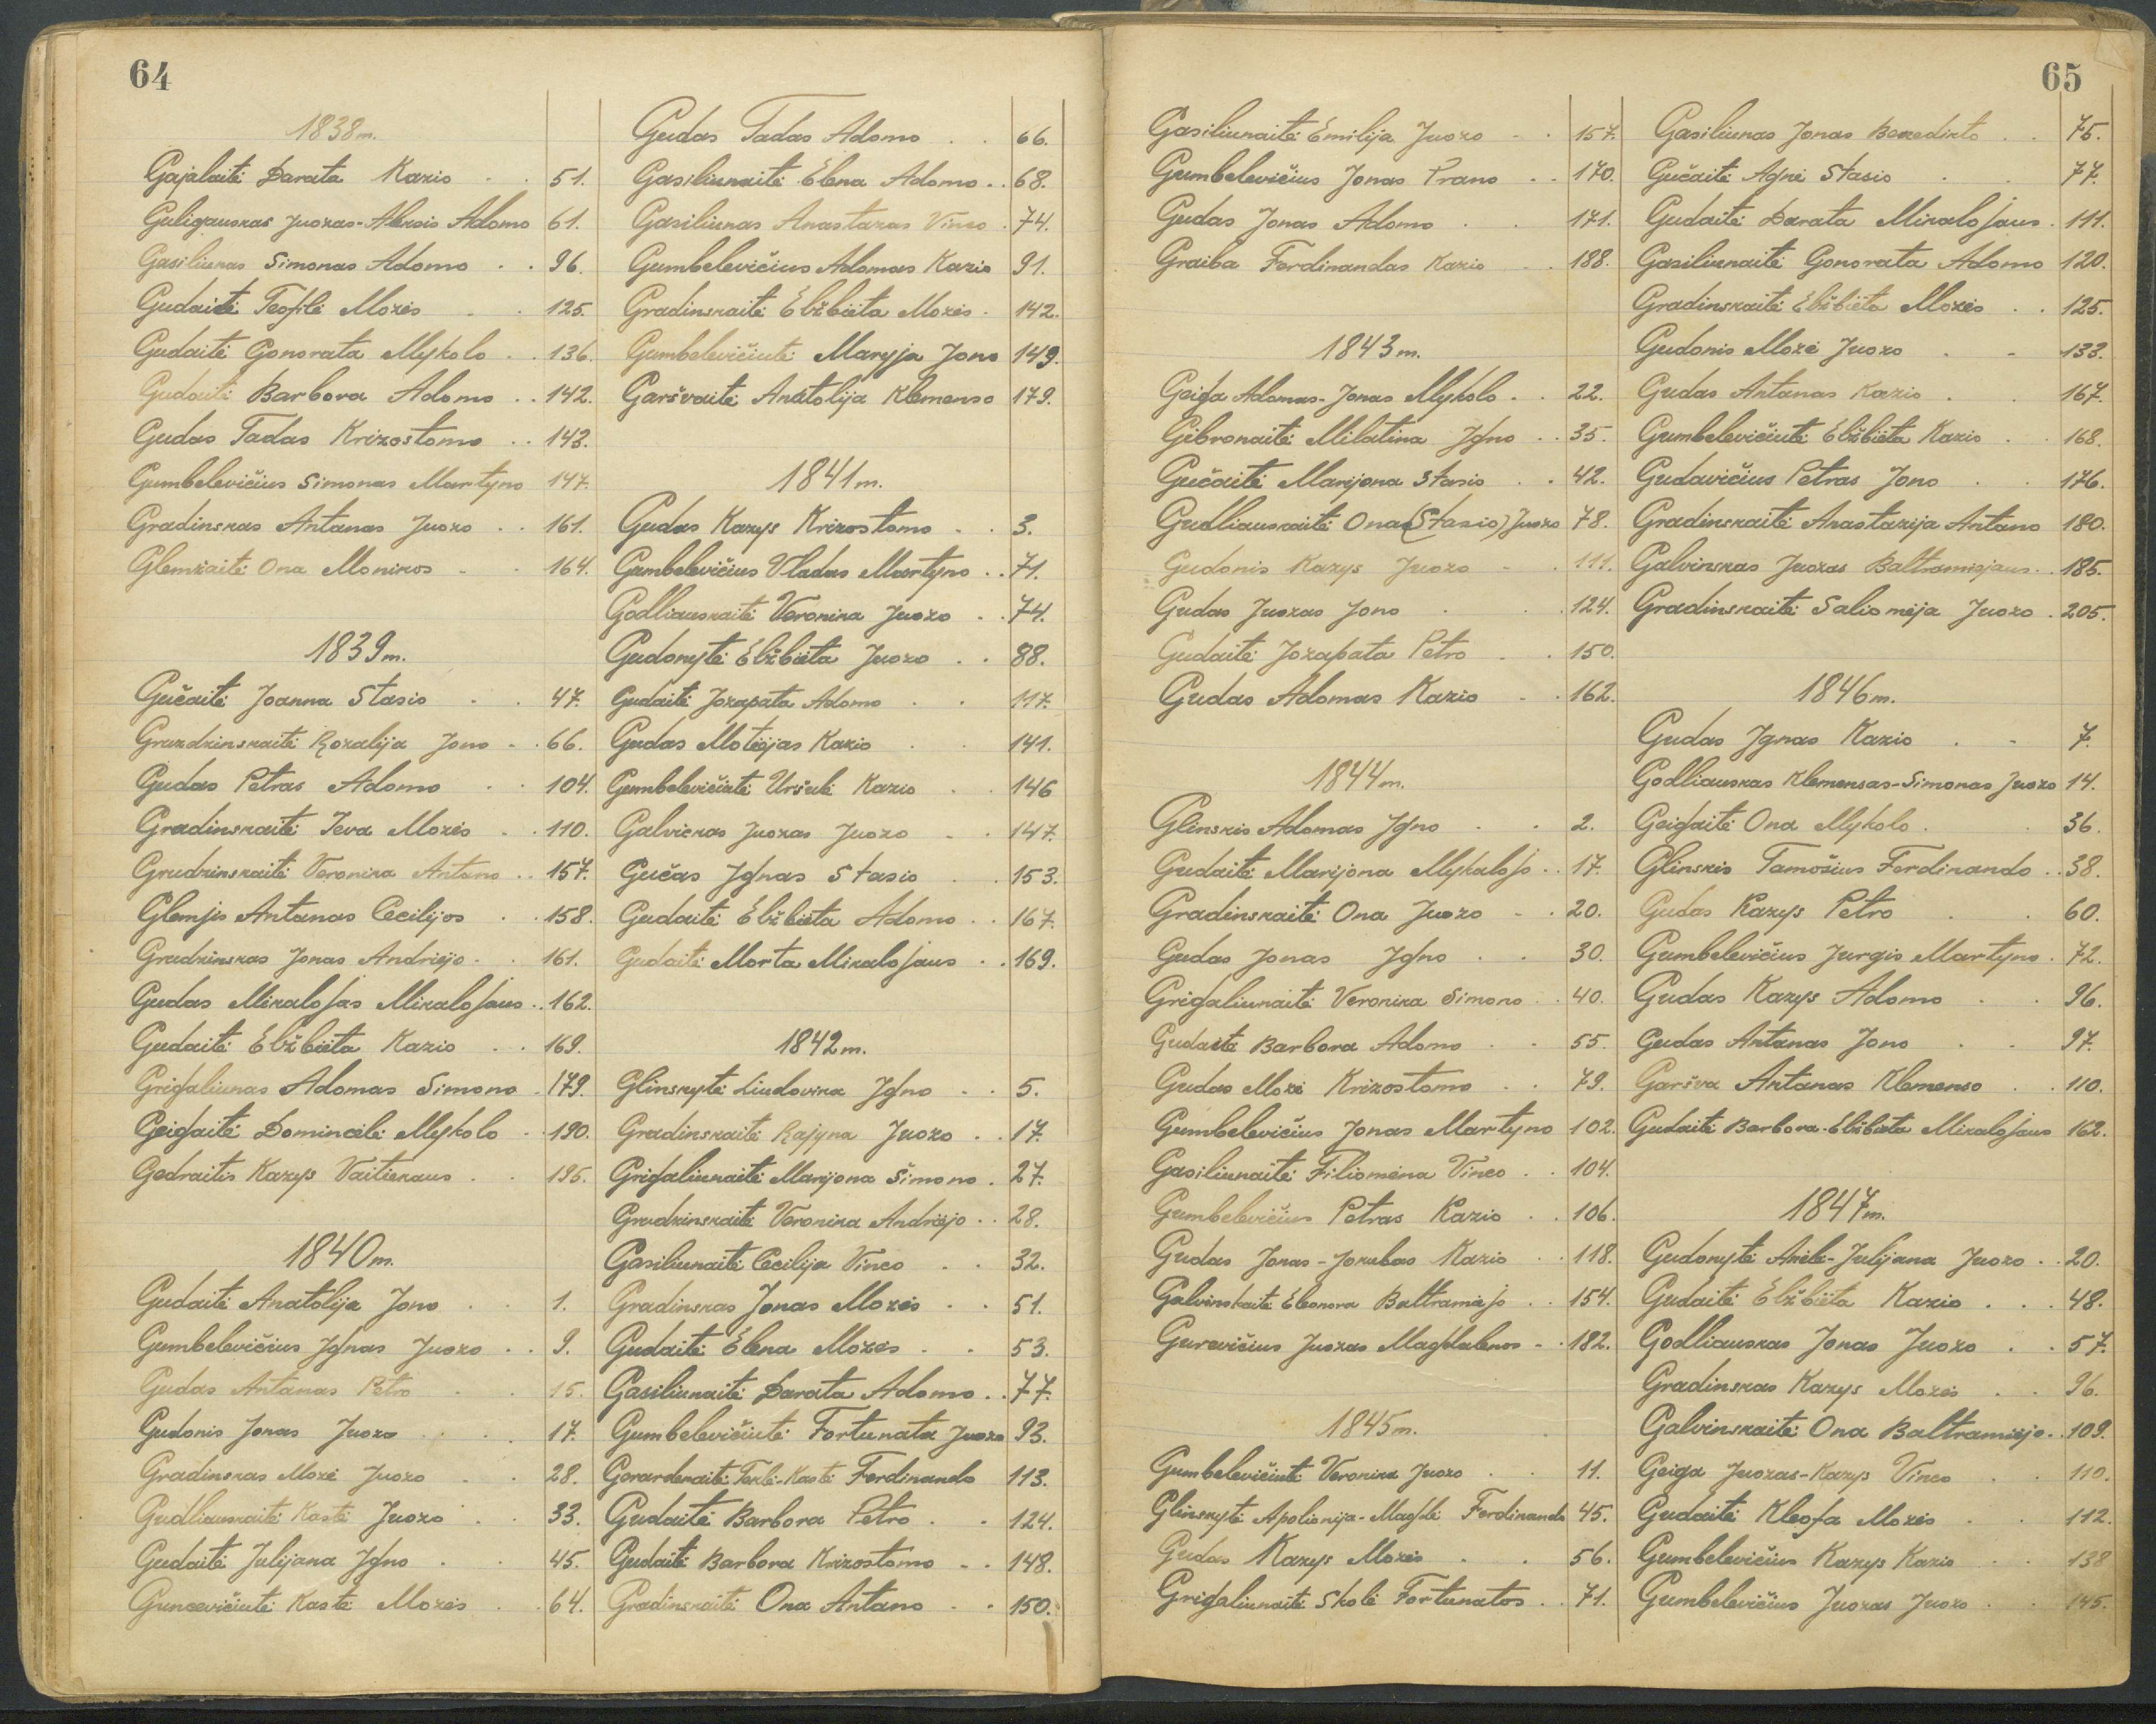 64
1838m.
Gajalaitė Darata Kazio . . 51.
Guligauskas Juozas-Aleksis Adomo 61.
Gasiliunas Simonas Adomo . . 96.
Gudaitė Teofilė Mozės . . 125.
Gudaitė Gonorata Mykolo . . 136.
Gudaitė Barbora Adomo . . 142.
Gudas Tadas Krizostomo . . 143.
Gumbelevičius Simonas Martyno 147.
Gradinskas Antanas Juozo . . 161.
Glemžaitė Ona Monikos . . 164.
1839m.
Gučaitė Joanna Stasio . . 47.
Gruzdzinskaitė Rozalija Jono . . 66.
Gudas Petras Adomo . . 104.
Gradinskaitė Ieva Mozės . . 110.
Grudzinskaitė Veronika Antano . . 157.
Glemžis Antanas Cecilijos . . 158.
Grudzinskas Jonas Andriejo . . 161.
Gudas Mikalojas Mikalojaus . . 162.
Gudaitė Elžbieta Kazio . . 169.
Grigaliunas Adomas Simono . 179.
Geigaitė Domincėlė Mykolo . . 190.
Gedraitis Kazys Vaitiekaus . . 195.
1840m.
Gudaitė Anatolija Jono . . 1.
Gumbelevičius Ignas Juozo . . 9.
Gudas Antanas Petro . . 15.
Gudonis Jonas Juozo . . 17.
Gradinskas Mozė Juozo . . 28.
Gudliauskaitė Kastė Juozo . . 33.
Gudaitė Julijana Igno . . 45.
Guncevičiutė Kastė Mozės . . 64.
Gudas Tadas Adomo . . 66.
Gasiliunaitė Elena Adomo . . 68.
Gasiliunas Anastazas Vinco . 74.
Gumbelevičius Adomas Kazio 91.
Gradinskaitė Elžbieta Mozės . 142.
Gumbelevičiutė Maryja Jono 149.
Garšvaitė Anatolija Klemenso 179.
1841m.
Gudas Kazys Krizostomo . . 3.
Gumbelevičius Vladas Martyno . . 71.
Godliauskaitė Veronika Juozo . . 74.
Gudonytė Elžbieta Juozo . . 88.
Gudaitė Jozapata Adomo . . 117.
Gudas Motiejas Kazio . . 141.
Gumbelevičiutė Uršulė Kazio . . 146
Galvickas Juozas Juozo . . 147.
Gučas Ignas Stasio . . 153.
Gudaitė Elžbieta Adomo . . 167.
Gudaitė Morta Mikalojaus . . 169.
1842m.
Glinskytė Liudovika Igno . . 5.
Gradinskaitė Rajyna Juozo . . 17.
Grigaliunaitė Marijona Simono . 27.
Grudzinskaitė Veronika Andriejo . . 28.
Gasiliunaitė Cecilija Vinco . . 32.
Gradinskas Jonas Mozės . . 51.
Gudaitė Elena Mozės . . 53.
Gasiliunaitė Darata Adomo . . 77.
Gumbelevičiutė Fortunata Juozo 93.
Gerardenaitė Teklė-Kastė Ferdinando 113.
Gudaitė Barbora Petro . . 124.
Gudaitė Barbora Krizostomo . . 148.
Gradinskaitė Ona Antano . . 150.
65
Gasiliunaitė Emilija Juozo . . 157.
Gumbelevičius Jonas Prano . . 170.
Gudas Jonas Adomo . . 171.
Graiba Ferdinandas Kazio . . 188.
1843m.
Geiga Adomas-Jonas Mykolo . . 22.
Gibronaitė Milatina Igno . . 35.
Gučaitė Marijona Stasio . . 42.
Gudliauskaitė Ona (Stasio) Juozo 78.
Gudonis Kazys Juozo . . 111.
Gudas Juozas Jono . . 124.
Gudaitė Jozapata Petro . . 150.
Gudas Adomas Kazio . . 162.
1844m.
Glinskis Adomas Igno . . 2.
Gudaitė Marijona Mykalojo . . 17.
Gradinskaitė Ona Juozo . . 20.
Gudas Jonas Igno . . 30.
Grigaliunaitė Veronika Simono . . 40.
Gudaitė Barbora Adomo . . 55.
Gudas Mozė Krizostomo . . 79.
Gumbelevičius Jonas Martyno 102.
Gasiliunaitė Filiomena Vinco . . 104.
Gumbelevičius Petras Kazio . . 106.
Gudas Jonas-Jokubas Kazio . . 118.
Galvinskaitė Eleonora Baltramiejo . . 154.
Gurevičius Juozas Magdalenos . . 182.
1845m.
Gumbelevičiutė Veronika Juozo . . 11.
Glinskytė Apolionija-Magdė Ferdinando 45.
Gudas Kazys Mozės . . 56.
Grigaliunaitė Skolė Fortunatos . . 71.
Gasiliunas Jonas Benedikto . . 75.
Gučaitė Agnė Stasio . . 77.
Gudaitė Darata Mikalojaus . 111.
Gasiliunaitė Gonorata Adomo 120.
Gradinskaitė Elžbieta Mozės . . 125.
Gudonis Mozė Juozo . . 133.
Gudas Antanas Kazio . . 167.
Gumbelevičiutė Elžbieta Kazio . . 168.
Gudavičius Petras Jono . . 176.
Gradinskaitė Anastazija Antano 180.
Galvinskas Juozas Baltramiejaus . . 185.
Gradinskaitė Saliomėja Juozo . 205.
1846m.
Gudas Ignas Kazio . . 7.
Godliauskas Klemensas-Simonas Juozo 14.
Geigaitė Ona Mykolo . . 36.
Glinskis Tamošius Ferdinando . . 38.
Gudas Kazys Petro . . 60.
Gumbelevičius Jurgis Martyno . 72.
Gudas Kazys Adomo . . 96.
Gudas Antanas Jono . . 97.
Garšva Antanas Klemenso . . 110.
Gudaitė Barbora-Elžbieta Mikalojaus 162.
1847m.
Gudonytė Anėlė-Julijana Juozo . . 20.
Gudaitė Elžbieta Kazio . . . 48.
Godliauskas Jonas Juozo . . 57.
Gradinskas Kazys Mozės . . 96.
Galvinskaitė Ona Baltramiejo . . 109.
Geiga Juozas-Kazys Vinco . . 110.
Gudaitė Kleofa Mozės . . 112.
Gumbelevičius Kazys Kazio . . 138
Gumbelevičius Juozas Juozo . . 145.